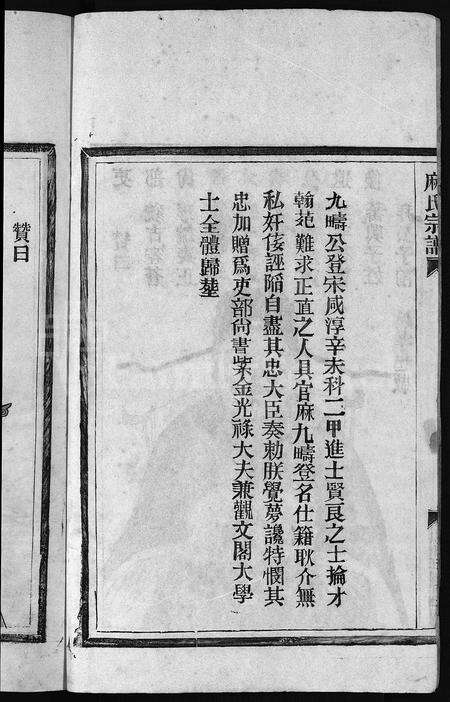 麻氏宗譜
九疇公登宋咸淳辛未科二甲進士賢良之士掄才
翰苑難求正直之人具官麻九疇登名仕籍耿介無
私奸佞誣陷自盡其忠大臣奏勅朕覺夢讒特憫其
忠加贈為吏部尚書紫金光祿大夫兼觀文閣大學
士全體歸塟
贊曰